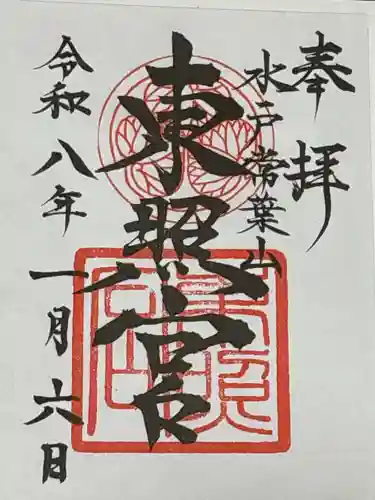 奉拝
水戸常葉山
東照宮
令和八年一月六日